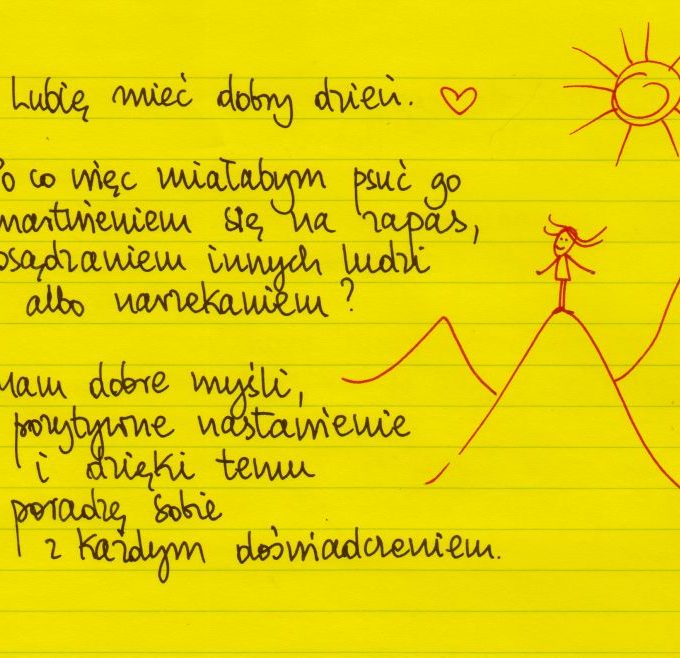 Lubię mieć dobry dzień.
Po co więc miałabym psuć go
martwieniem się na zapas,
osądzaniem innych ludzi
albo narzekaniem?
Mam dobre myśli,
pozytywne nastawienie
i dzięki temu
poradzę sobie
z każdym doświadczeniem.